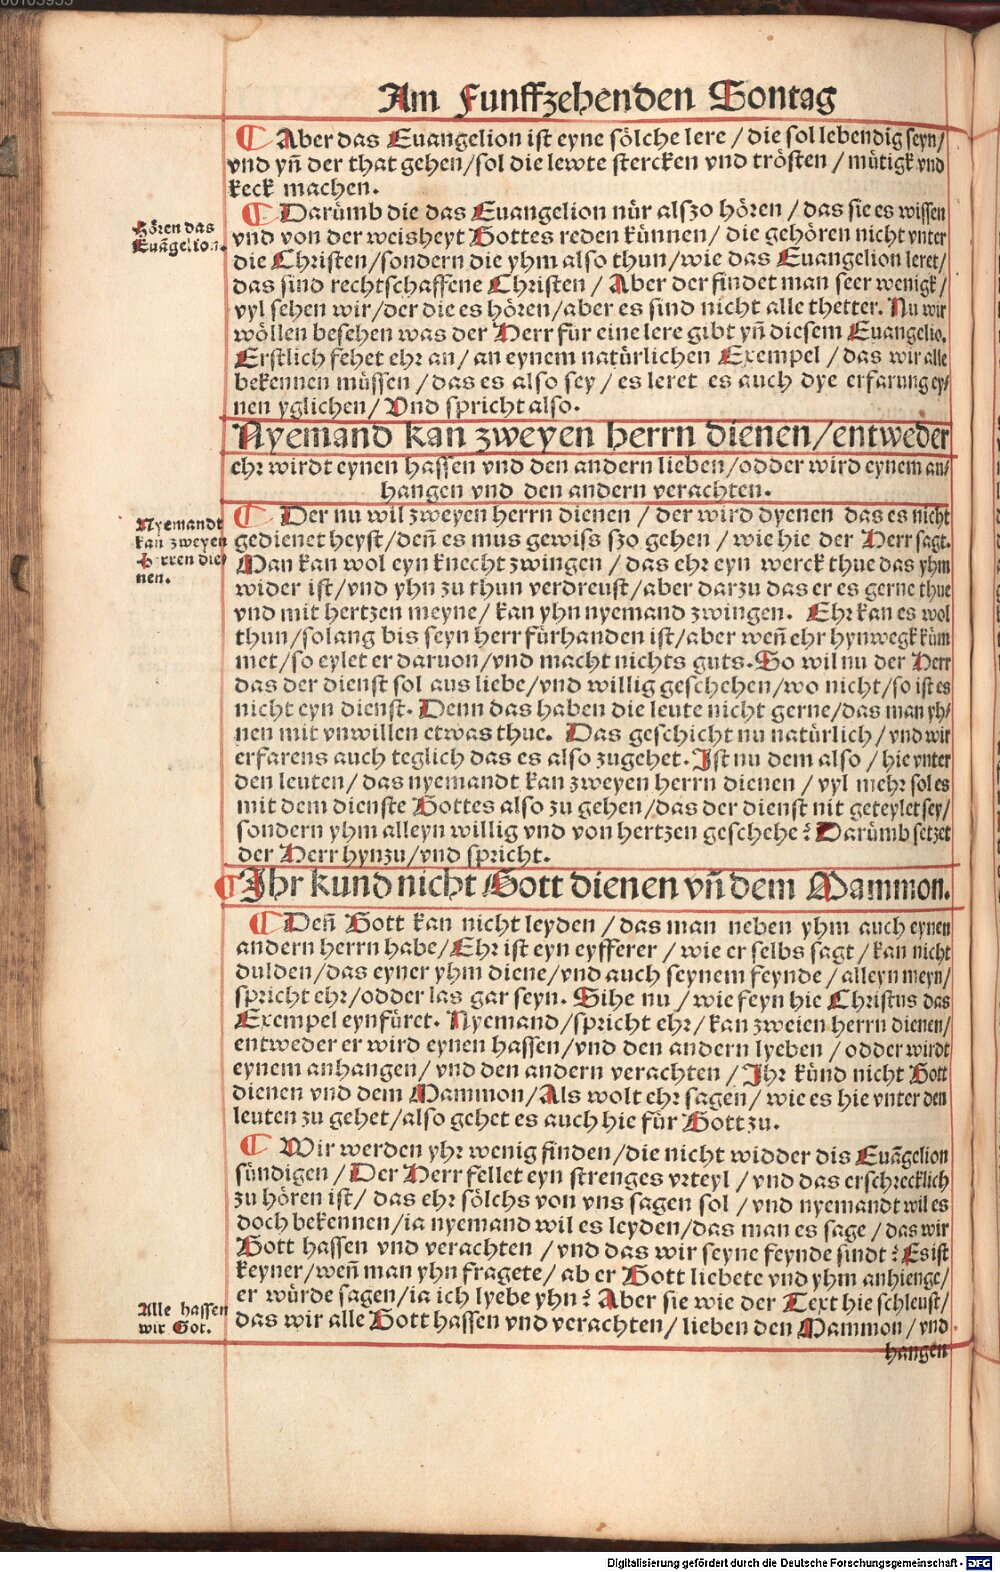 Am Funffzehenden Sontag
¶ Aber das Euangelion ist eyne sölche lere / die sol lebendig seyn/
vnd yn̄ der that gehen/sol die lewte stercken vnd trösten / mütigk vnd
keck machen.
¶ Darümb die das Euangelion nür alszo hören / das sie es wissen
Hören das
Euāgelion.
vnd von der weisheyt Gottes reden künnen/ die gehören nicht vnter
die Christen/sondern die yhm also thun/wie das Euangelion leret/
das sind rechtschaffene Christen / Aber der findet man seer wenigk/
vyl sehen wir/der die es hören/aber es sind nicht alle thetter. Nu wir
wöllen besehen was der Herr für eine lere gibt yn̄ diesem Euangelio.
Erstlich fehet ehr an/ an eynem natürlichen Exempel / das wir alle
bekennen müssen /das es also sey / es leret es auch dye erfarung ey/
nen yglichen/ Vnd spricht also.
Nyemand kan zweyen herrn dienen/entweder
ehr wirdt eynen hassen vnd den andern lieben/odder wird eynem an/
hangen vnd den andern verachten.
Nyemandt
kan zweyen
Herren die/
nen.
¶ Der nu wil zweyen herrn dienen / der wird dyenen das es nicht
gedienet heyst/den̄ es mus gewiss szo gehen / wie hie der Herr sagt.
Man kan wol eyn knecht zwingen / das ehr eyn werck thue das yhm
wider ist/vnd yhn zu thun verdreust/aber darzu das er es gerne thue
vnd mit hertzen meyne/ kan yhn nyemand zwingen. Ehr kan es wol
thun/solang bis seyn herr fürhanden ist/aber wen̄ ehr hynwegk küm
met/so eylet er daruon/vnd macht nichts guts. So wil nu der Herr
das der dienst sol aus liebe/vnd willig geschehen/wo nicht/so ist es
nicht eyn dienst. Denn das haben die leute nicht gerne/das man yh/
nen mit vnwillen etwas thue. Das geschicht nu natürlich/ vnd wir
erfarens auch teglich das es also zugehet. Ist nu dem also / hie vnter
den leuten/ das nyemandt kan zweyen herrn dienen / vyl mehr sol es
mit dem dienste Gottes also zu gehen/das der dienst nit geteylet sey/
sondern yhm alleyn willig vnd von hertzen geschehe? Darümb setzet
der Herr hynzu/vnd spricht.
¶ Ihr kund nicht Gott dienen vn̄ dem Mammon.
¶ Den̄ Gott kan nicht leyden / das man neben yhm auch eynen
andern herrn habe/Ehr ist eyn eyfferer / wie er selbs sagt / kan nicht
dulden/das eyner yhm diene/vnd auch seynem feynde / alleyn meyn/
spricht ehr/odder las gar seyn. Sihe nu / wie feyn hie Christus das
Exempel eynfüret. Nyemand/spricht ehr/ kan zweien herrn dienen/
entweder er wird eynen hassen/vnd den andern lyeben / odder wirdt
eynem anhangen/ vnd den andern verachten / Ihr künd nicht Gott
dienen vnd dem Mammon/Als wolt ehr sagen/ wie es hie vnter den
leuten zu gehet/also gehet es auch hie für Gott zu.
¶ Wir werden yhr wenig finden/die nicht widder dis Euāgelion
sündigen / Der Herr fellet eyn strenges vrteyl / vnd das erschrecklich
zu hören ist/ das ehr sölchs von vns sagen sol / vnd nyemandt wil es
doch bekennen/ia nyemand wil es leyden/das man es sage / das wir
Gott hassen vnd verachten / vnd das wir seyne feynde sindt? Es ist
keyner/wen̄ man yhn fragete/ ab er Gott liebete vnd yhm anhienge/
er würde sagen/ia ich lyebe yhn? Aber sie wie der Text hie schleust/
das wir alle Gott hassen vnd verachten/ lieben den Mammon / vnd
Alle hassen
wir Got.
hangen
Digitalisierung gefördert durch die Deutsche Forschungsgemeinschaft - DFG